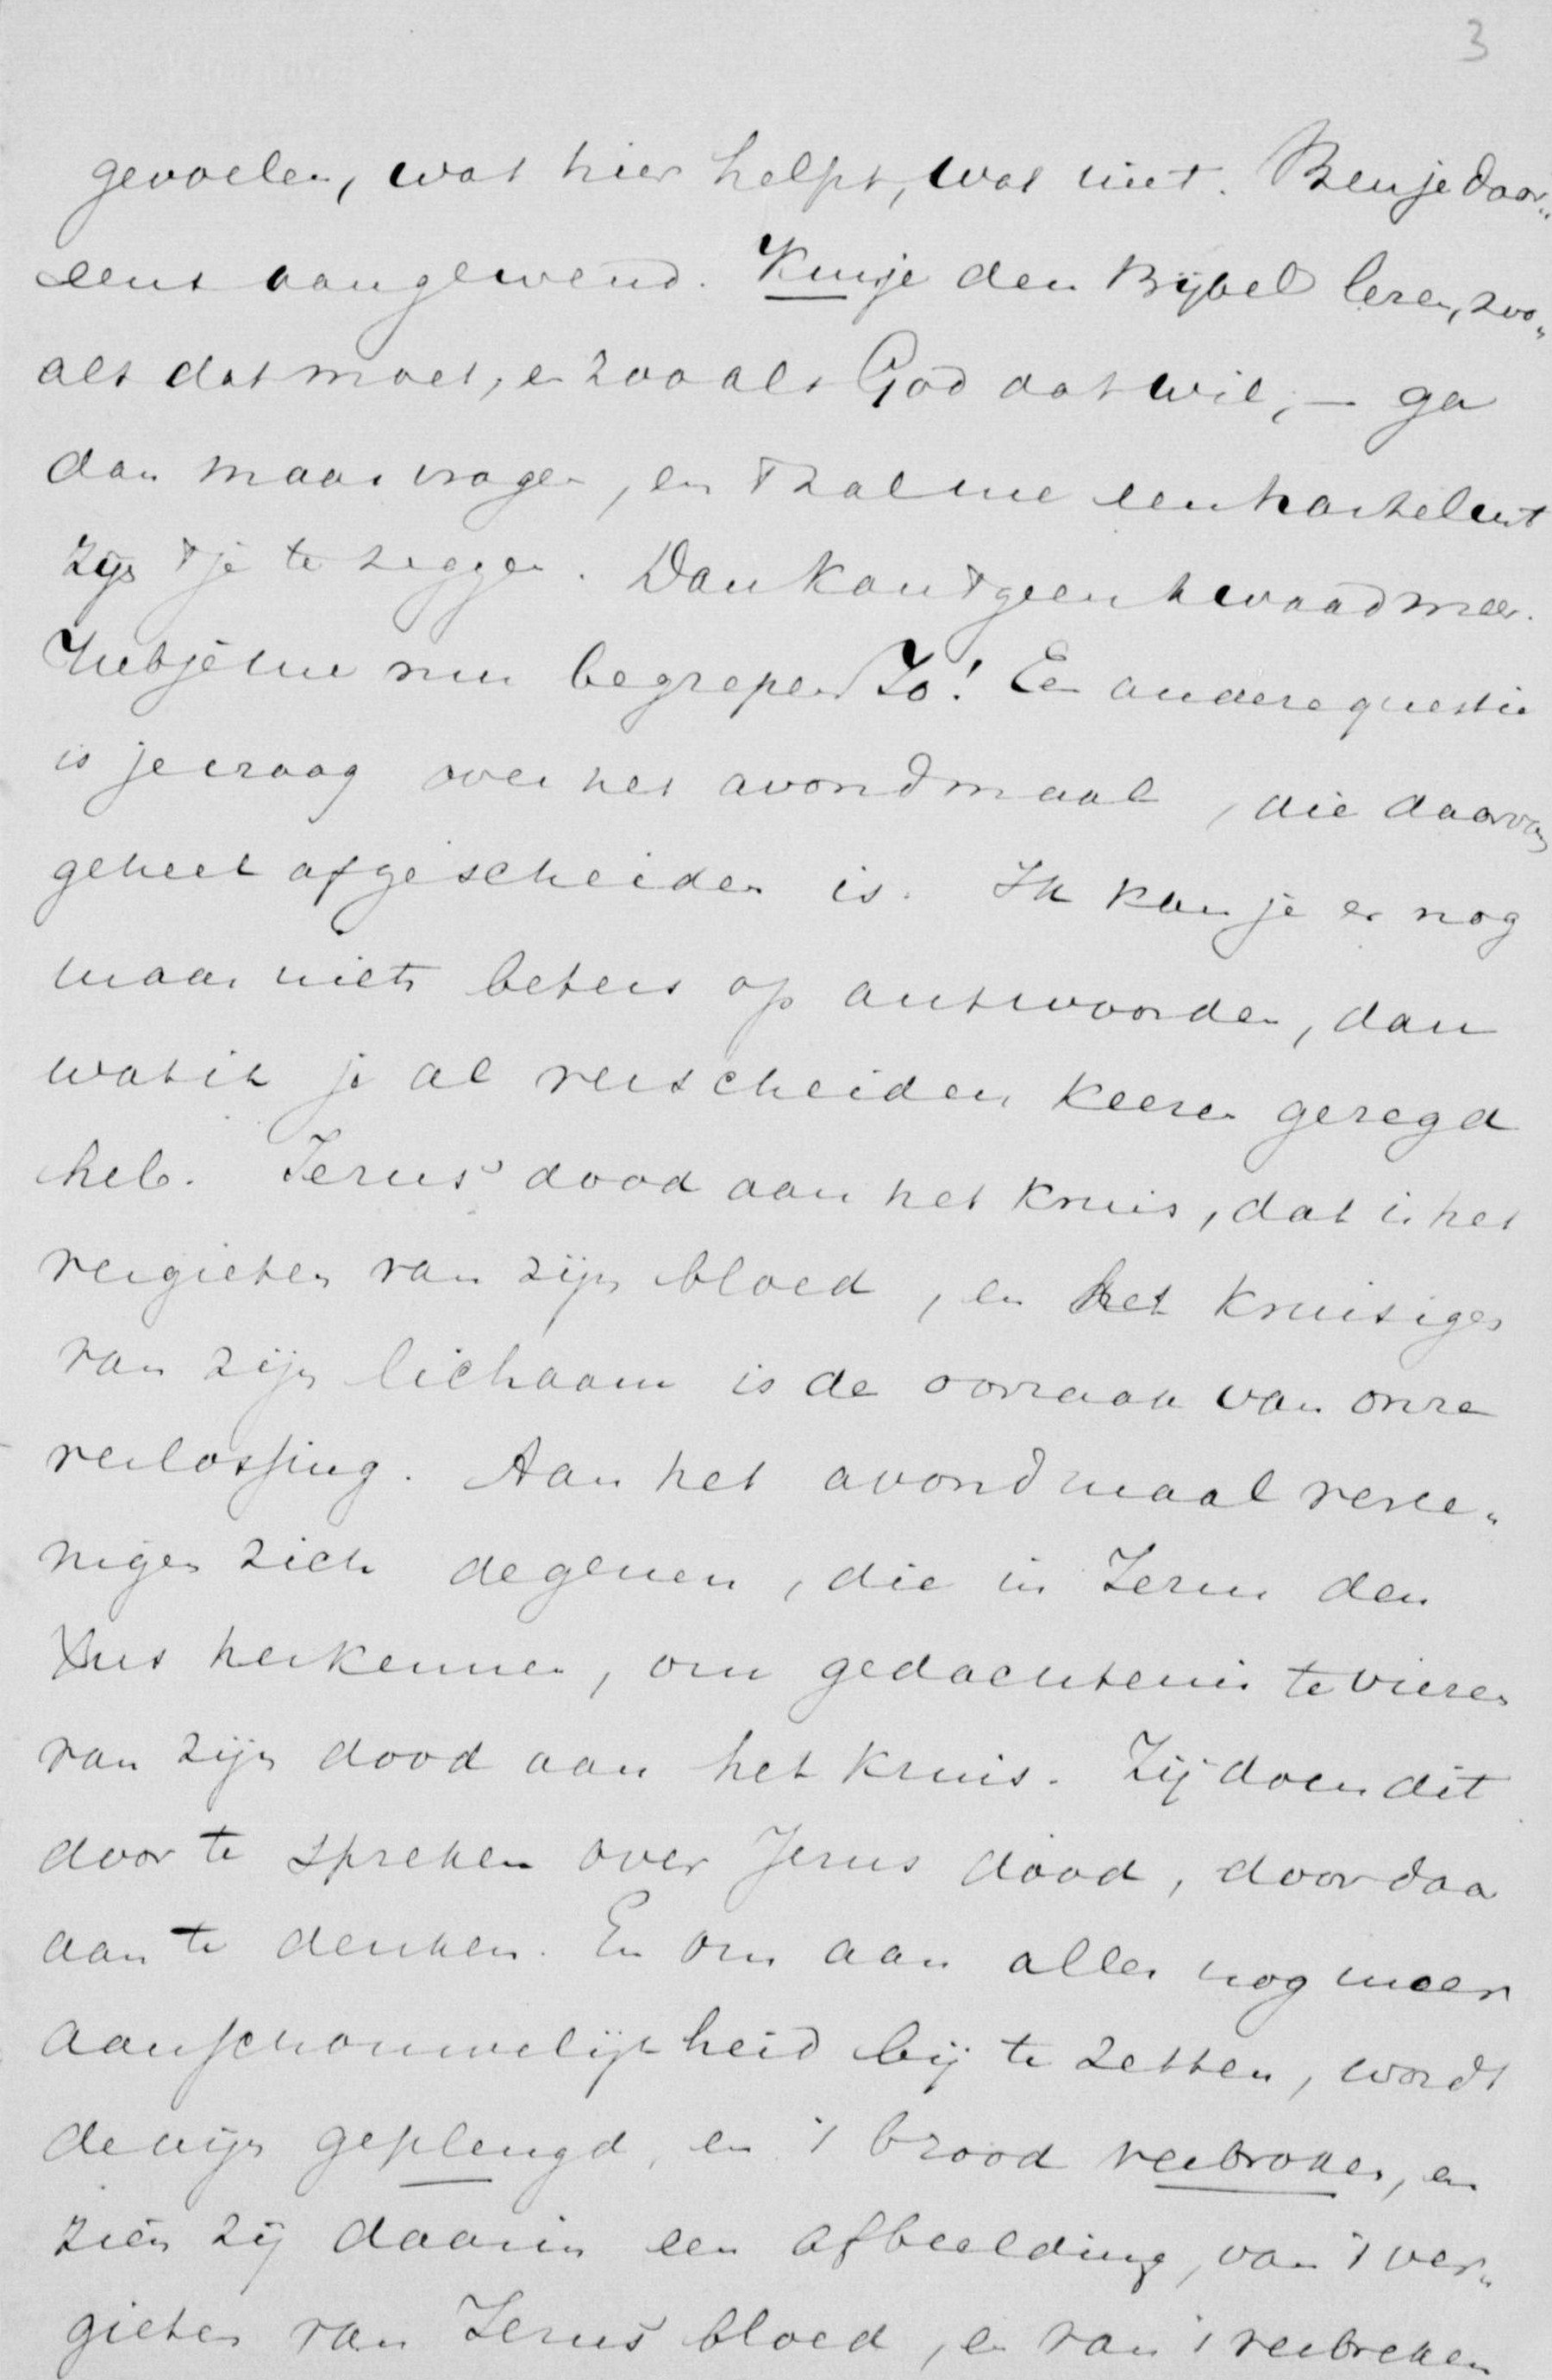 3
gevoelen, wat hier helpt, wat niet. Ben je daar„
eens aangewend. Kun je den Bijbel lezen, zoo„
als dat moet, en zooals God dat wil, — ga
dan maar vragen, en 't zal me een hartelust
zijn 't je te zeggen. Dan kan 't geen kwaad meer.
Heb je me nu begrepen Jo! Een andere questie
is je vraag over het avondmaal, die daarvan
geheel afgescheiden is. Ik kan je er nog
maar niets beters op antwoorden, dan
wat ik je al verscheiden keeren gezegd
heb. Jezus' dood aan het kruis, dat is het
vergieten van zijn bloed, en het kruisigen
van zijn lichaam is de oorzaak van onze
verlossing. Aan het avondmaal veree„
nigen zich degenen, die in Jezus den
Xus herkennen, om gedachtenis te vieren
van zijn dood aan het kruis. Zij doen dit
door te spreken over Jezus dood, door daar
aan te denken. En om aan alles nog meer
aanschouwelijkheid bij te zetten, wordt
de wijn geplengd, en 't brood verbroken, en
zien zij daarin een afbeelding, van 't ver„
gieten van Jezus' bloed, en van 't verbreken